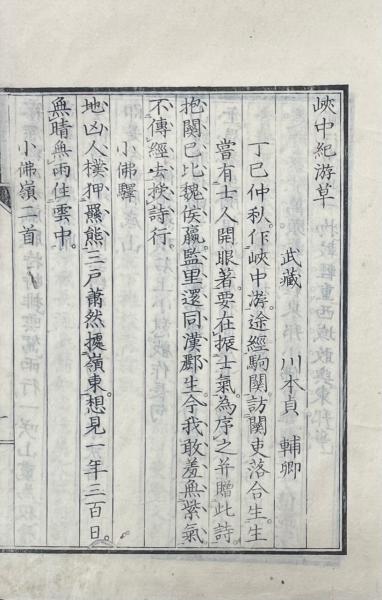 峽中紀游草
武藏　川本貞　輔卿
丁巳仲秋。作峽中游。途經駒關。訪關吏落合生。生
嘗有士人開眼著。要在振士氣。為序之并贈此詩。
抱關已比魏侯嬴。監里還同漢酈生。今我敢羞無紫氣
不傳經去挾詩行。
小佛驛
地凶人樸狎羆熊。三戸蕭然擾嶺東。想見一年三百日。
無晴無雨住雲中。
小佛嶺二首